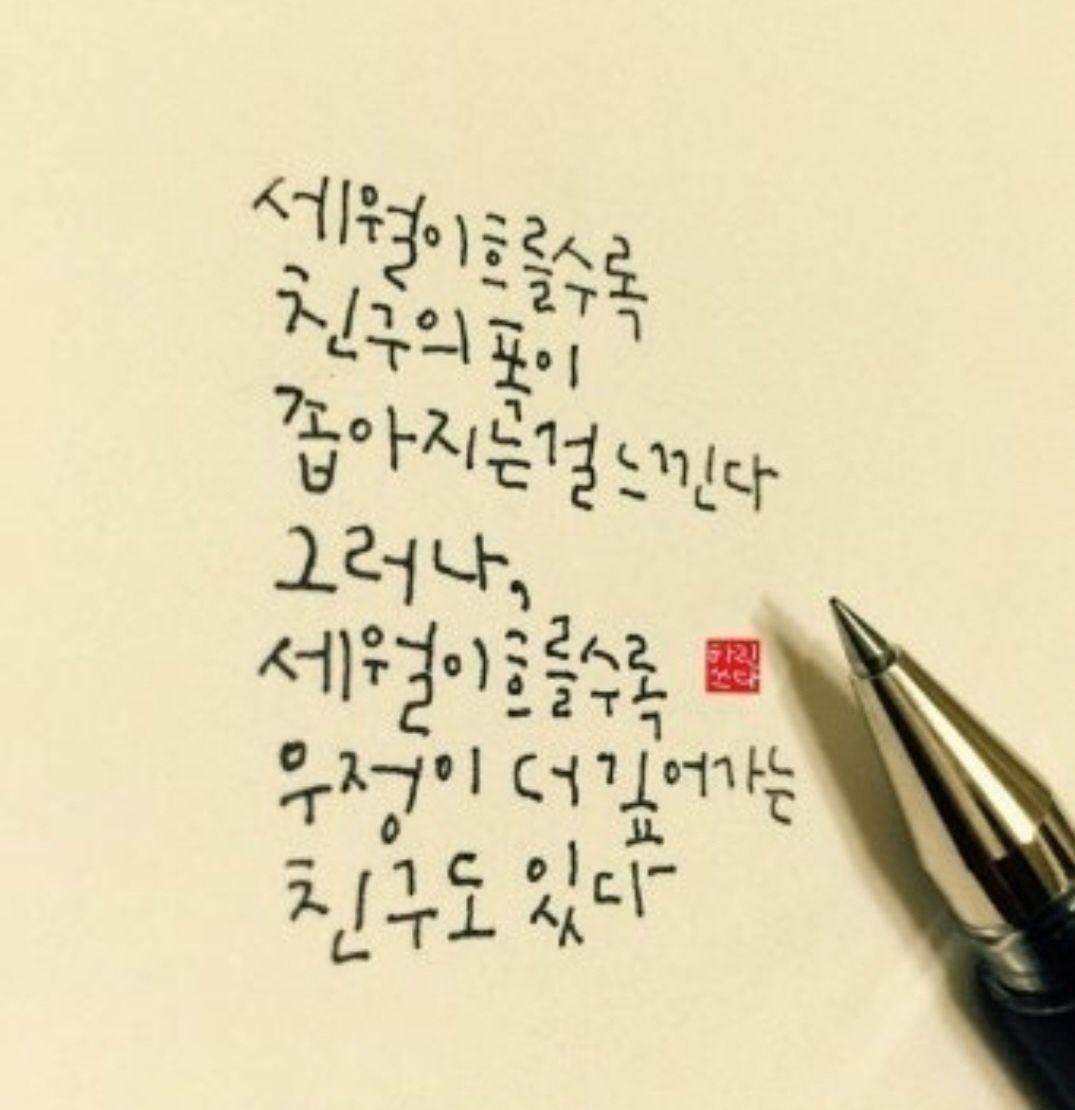 세월이 흐를수록
친구의 폭이
좁아지는걸 느낀다
그러나,
세월이 흐를수록
하린
쓰다
우정이 더 깊어가는
친구도 있다